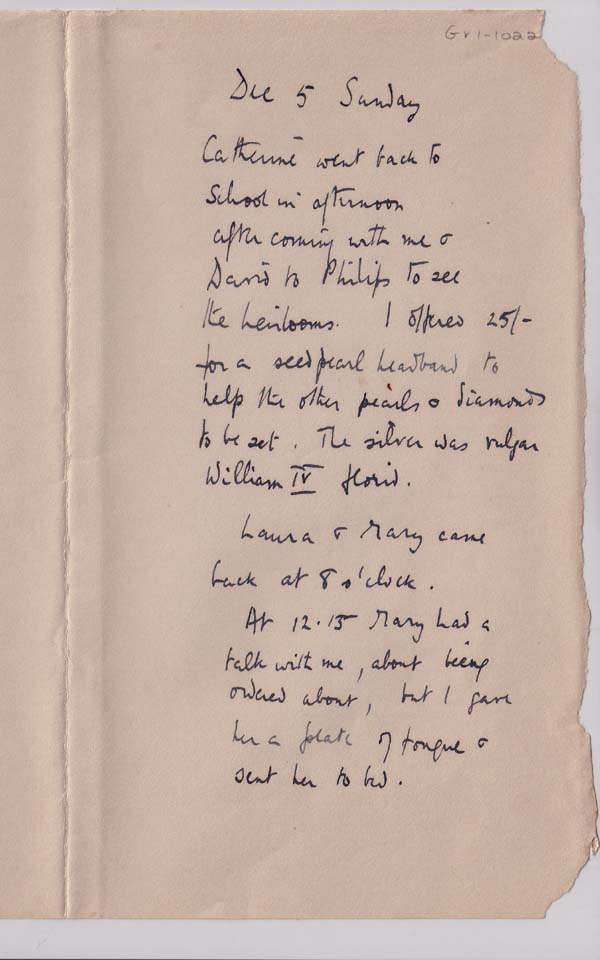 Gv1-1022
Dec 5 Sunday
Catherine went back to
School in afternoon
after coming with me &
David to Philips to see
the heirlooms. I offered 25/-
for a seedpearl headband to
help the other pearls & diamonds
to be set. The silver was vulgar
William IV florid.
Laura & Mary came
back at 8 o'clock.
At 12.15 Mary had a
talk with me, about being
ordered about, but I gave
her a plate of tongue &
sent her to bed.